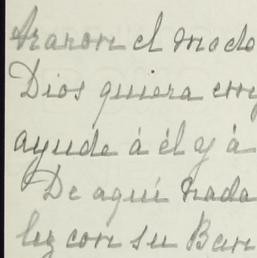 araron el modo
Dios quiera
ayude á él y á
De aquí nada
luz con su Ban